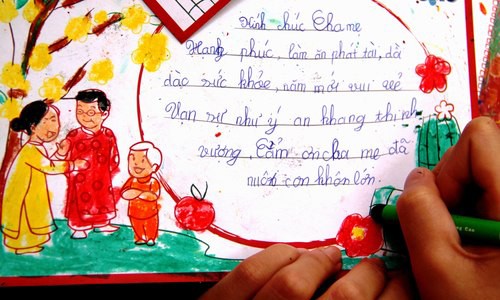 Kính chúc Cha mẹ
Hạnh phúc, làm ăn phát tài, dồi
dào sức khỏe, năm mới vui vẻ
Vạn sự như ý an khang thịnh
vượng, Cảm ơn cha mẹ đã
nuôi con khôn lớn.